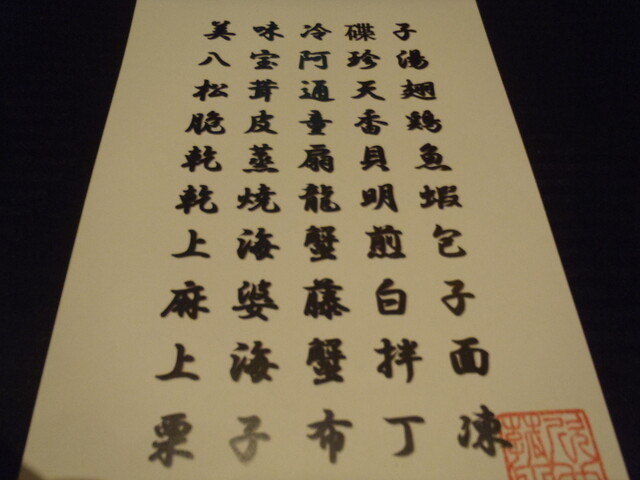 美味冷碟子
八宝阿珍湯
松茸通天翅
脆皮童香鶏
乾蒸扇貝魚
乾焼龍明蝦
上海蟹煎包
麻婆藤白子
上海蟹拌面
栗子布丁凍